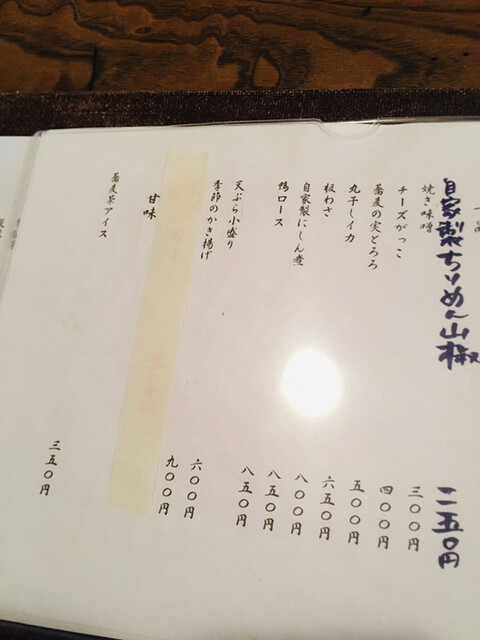 一品
自家製ちりめん山椒 二五〇円
焼き味噌 三〇〇円
チーズがっこ 四〇〇円
蕎麦の実とろろ 五〇〇円
丸干しイカ 六五〇円
板わさ 八〇〇円
自家製にしん煮 八五〇円
鴨ロース 八五〇円
天ぷら小盛り 六〇〇円
季節のかき揚げ 九〇〇円
甘味
蕎麦茶アイス 三五〇円